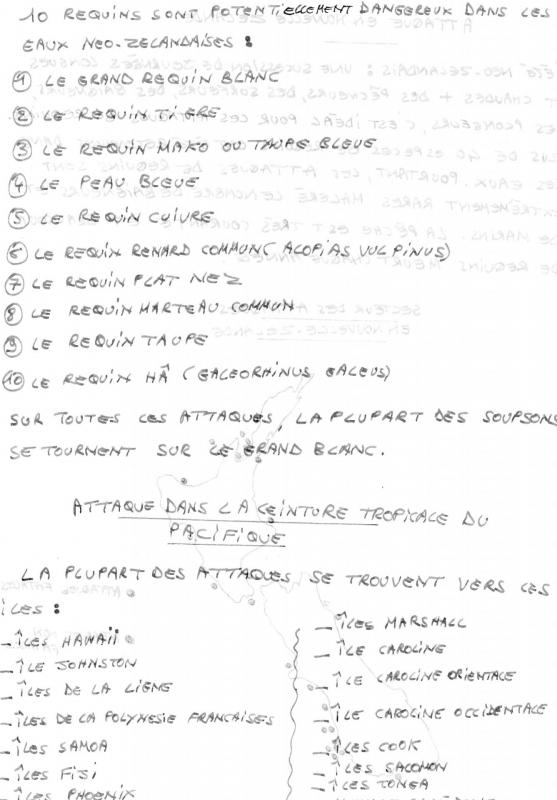 10 REQUINS SONT POTENTIELLEMENT DANGEREUX DANS LES
EAUX NEO-ZELANDAISES :
① LE GRAND REQUIN BLANC
② LE REQUIN TIGRE
③ LE REQUIN MAKO OU TAUPE BLEUE
④ LE PEAU BLEUE
⑤ LE REQUIN CUIVRE
⑥ LE REQUIN RENARD COMMUN (ALOPIAS VULPINUS)
⑦ LE REQUIN PLAT NEZ
⑧ LE REQUIN MARTEAU COMMUN
⑨ LE REQUIN TAUPE
⑩ LE REQUIN HÂ (GALEORHINUS GALEUS)
SUR TOUTES CES ATTAQUES, LA PLUPART DES SOUPSONS
SE TOURNENT SUR LE GRAND BLANC.
ATTAQUE DANS LA CEINTURE TROPICALE DU
PACIFIQUE
LA PLUPART DES ATTAQUES SE TROUVENT VERS LES
ÎLES :
_ ÎLES HAWAÏÏ
_ ÎLE JOHNSTON
_ ÎLES DE LA LIGNE
_ ÎLES DE LA POLYNESIE FRANCAISES
_ ÎLES SAMOA
_ ÎLES FIJI
_ ÎLES PHOENIX
_ ÎLES MARSHALL
_ ÎLE CAROLINE
_ ÎLE CAROLINE ORIENTALE
_ ÎLE CAROLINE OCCIDENTALE
_ ÎLES COOK
_ ÎLES SALOMON
_ ÎLES TONGA